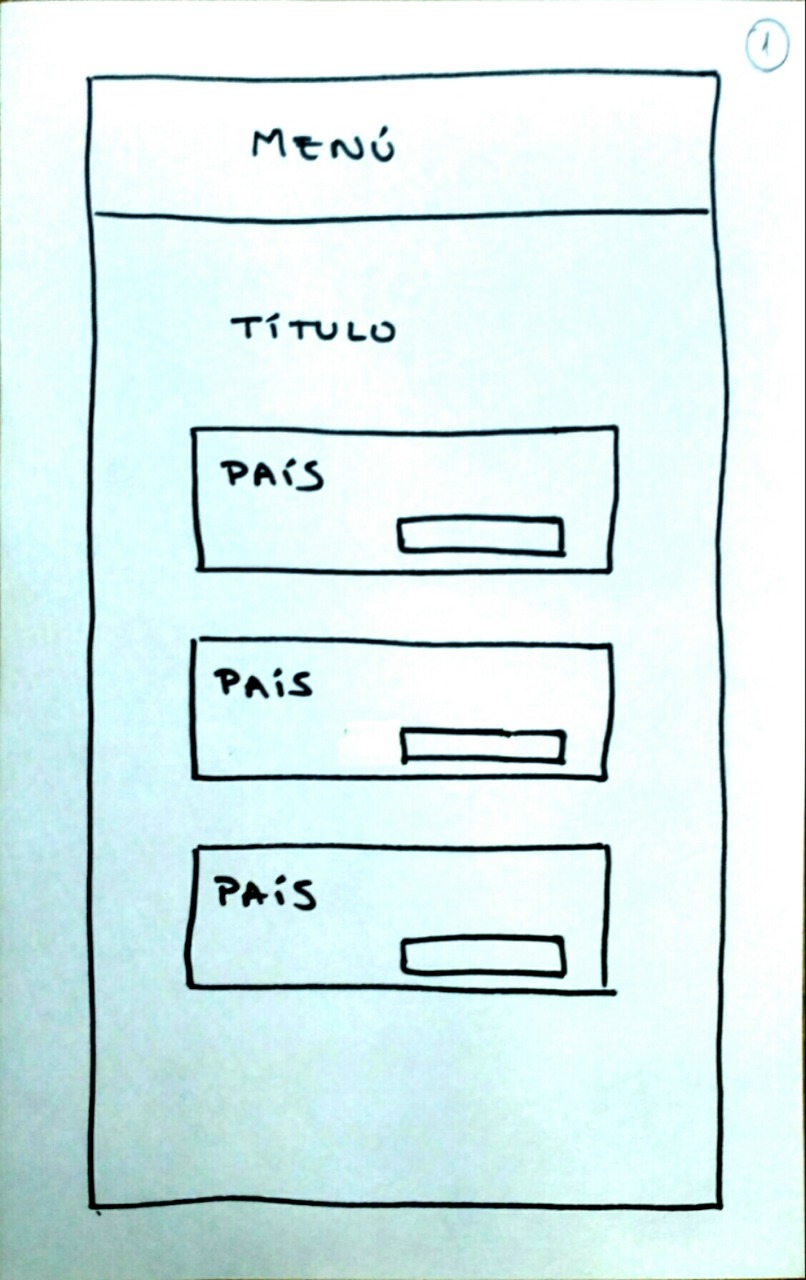 1
MENÚ
TÍTULO
PAÍS
PAÍS
PAÍS